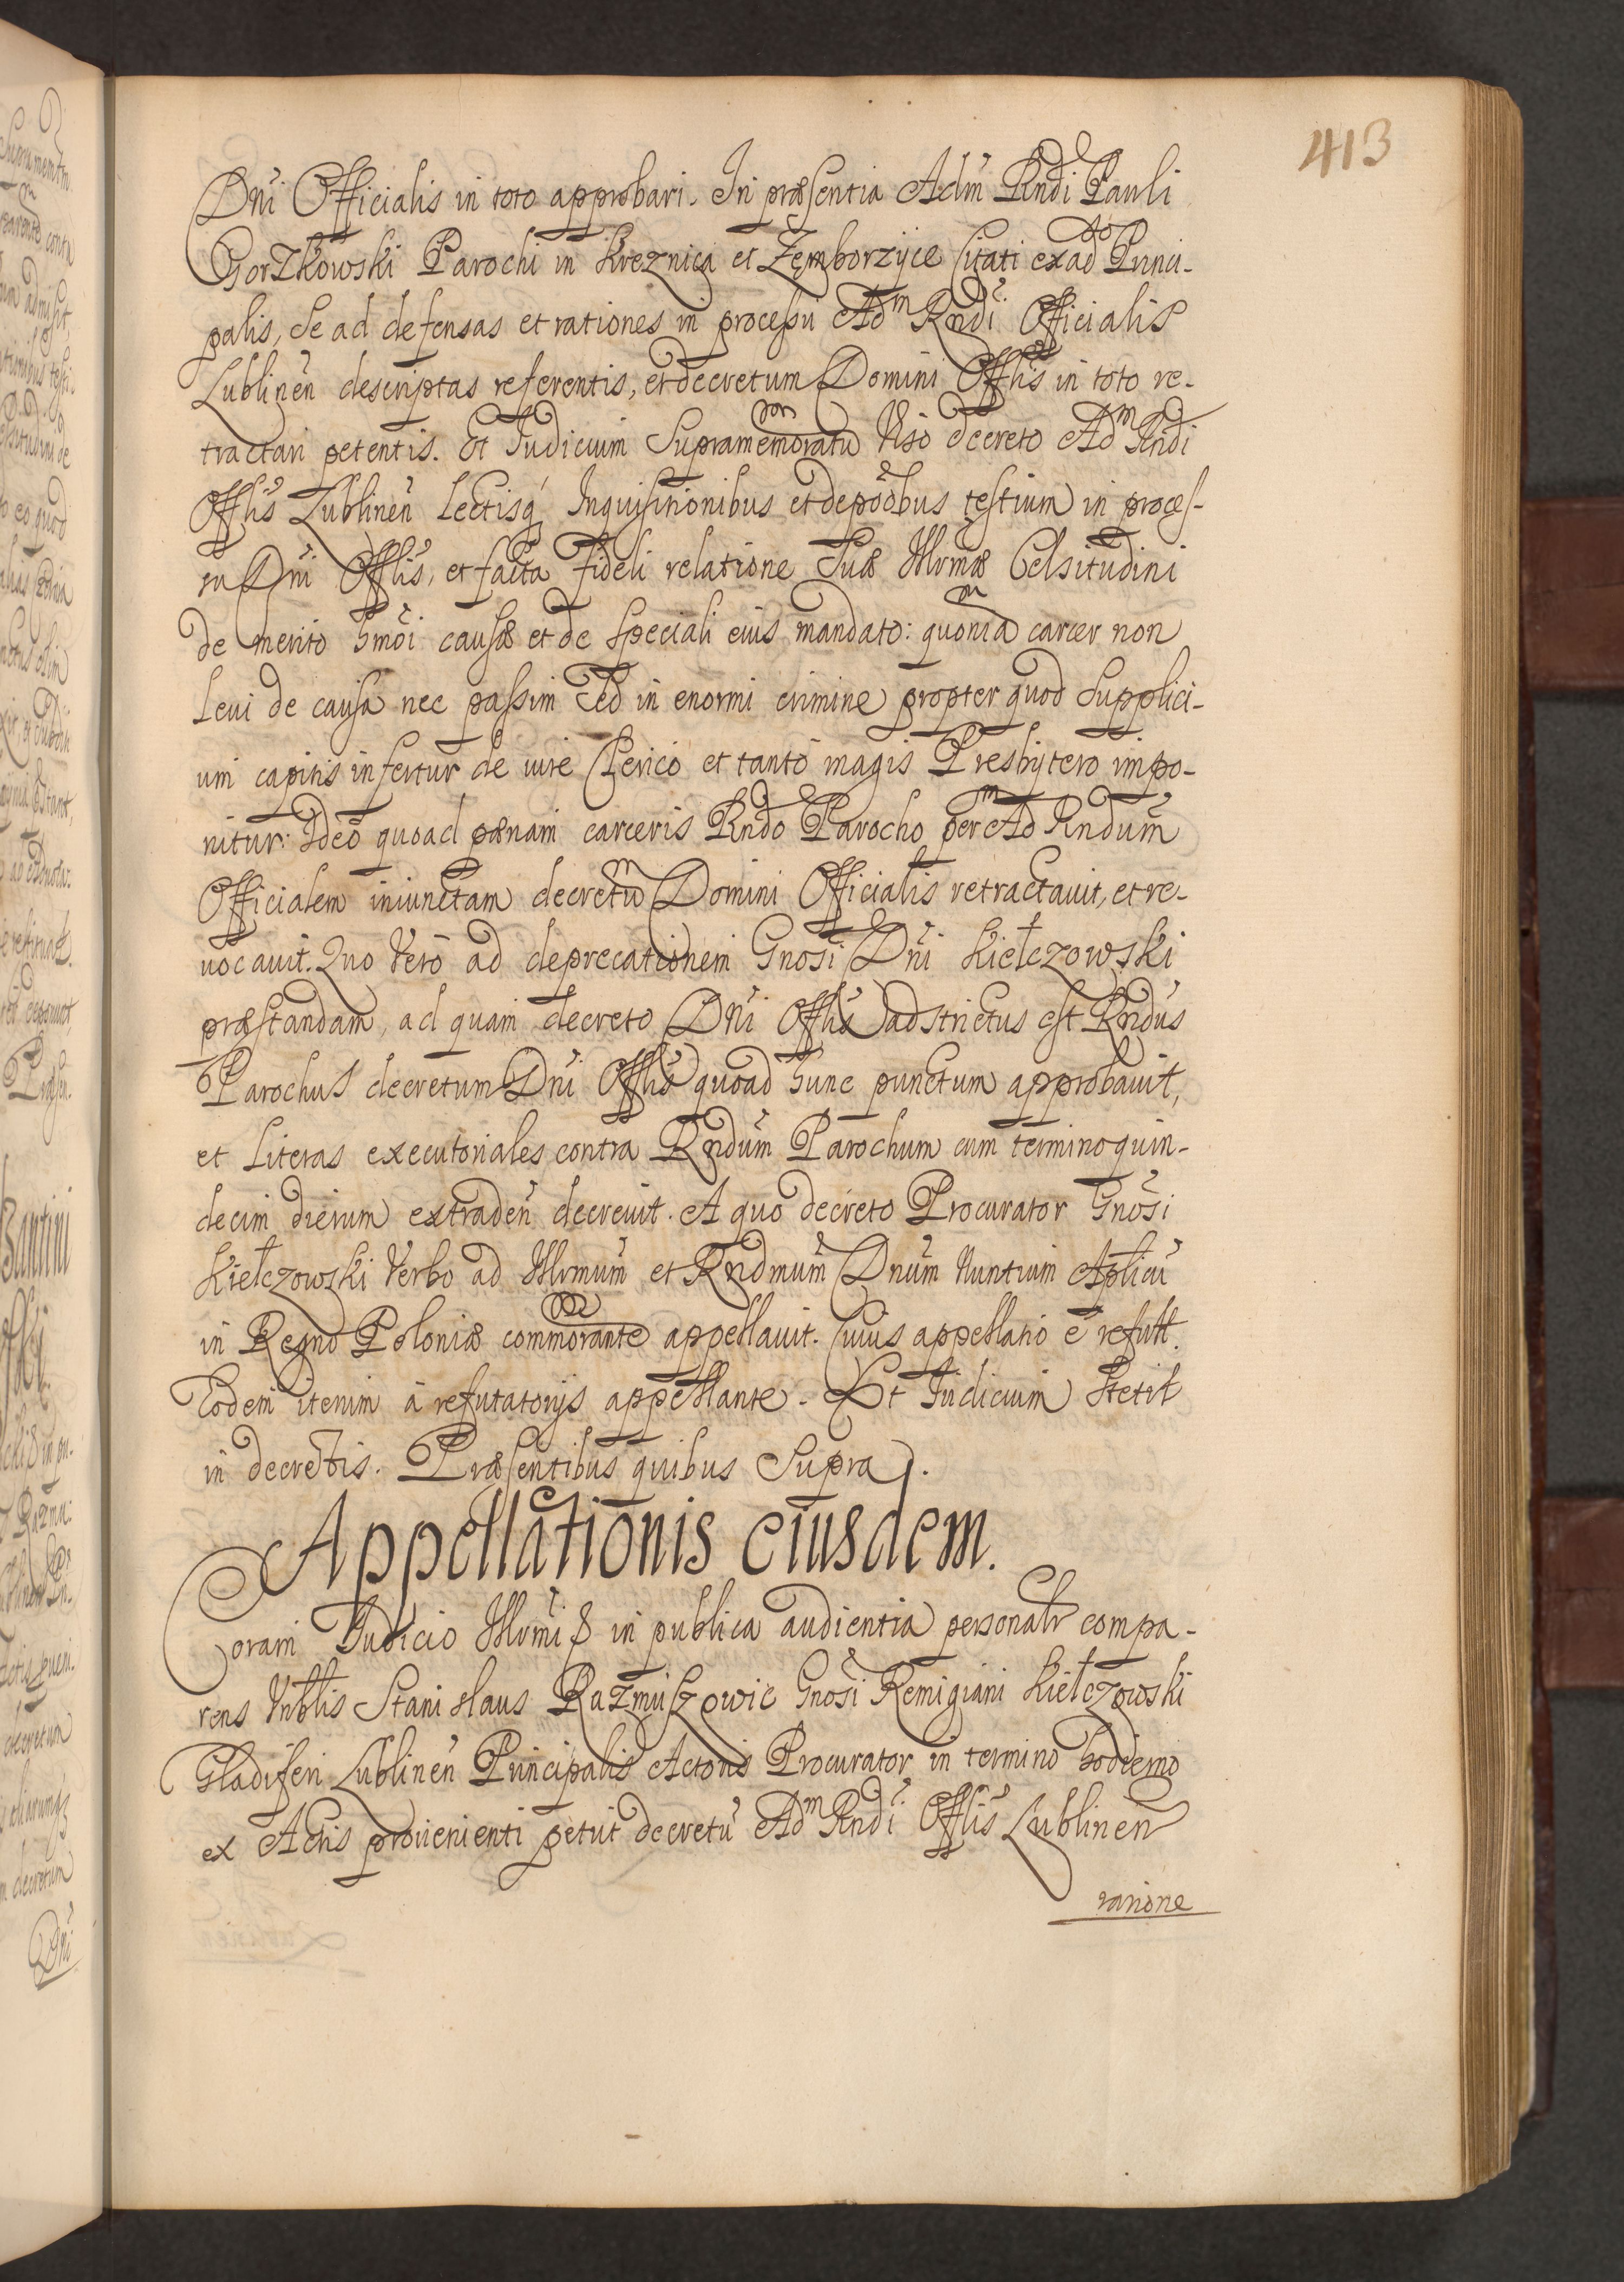 413
Dni Officialis in toto approbari. In præsentia Adm Rndi Pauli
Gorzkowski Parochi in Kreznica et Zęmborzyce Citati ex ad Princi-
palis, se ad defensas et rationes in processu Adm Rndi Officialis
Lublinen descriptas referentis, et decretum Domini Offlis in toto re-
tractari petentis. Et Iudicium Supramemoratu Viso decreto Adm Rndi
Offlis Lublinen Lectisq Inquisitionibus et depoobus testium in proces-
su Dni Offlis, et facta fideli relatione Suæ Illrmæ Celsitudini
de merito hmoi causæ et de speciali eius mandato: quonia carcer non
Leui de causa nec passim Sed in enormi crimine propter quod Supplici-
um capitis infertur de iure Clerico et tanto magis Presbytero impo-
nitur: Ideo quoad pænam carceris Rndo Parocho per Adm Rndum
Officialem iniunctam decretu Domini Officialis retractauit, et re-
uocauit. Quo Vero ad deprecationem Gnosi Dni Kiełczowski
præstandam, ad quam decreto Dni Offlis adstrictus est Rndus
Parochus decretum Dni Offlis quoad hunc punctum approbauit,
et Literas executoriales contra Rndum Parochum cum termino quin-
decim dierum extraden decreuit. A quo decreto Procurator Gnosi
Kiełczowski Verbo ad Illrmum et Rndmum Dnum Nuntium Aplicu
in Regno Poloniæ commorante appellauit. Cuius appellatio e refutt.
Eodem iterum a refutatorijs appellante. Et Iudicium Stetit
in decretis. Præsentibus quibus Supra.
Appellationis eiusdem.
Coram Iudicio Illrmi S in publica audientia personalr compa-
rens Vnblis Stanislaus Razmuszowic Gnosi Remigiani Kiełczowski
Gladiferi Lublinen Principalis Actoris Procurator in termino hodierno
ex Actis prouenienti petut decretu Adm Rndi Offlis Lublinen
ratione